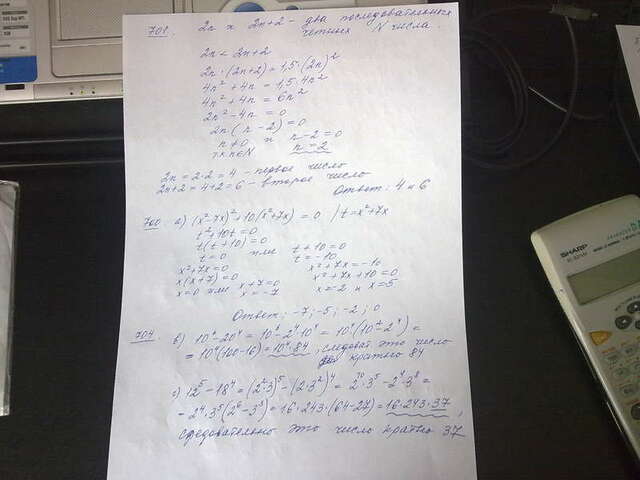 701. 2n и 2n+2 - два последовательных
четных N числа.
2n < 2n+2
2n·(2n+2)=1,5·(2n)²
4n²+4n = 1,5·4n²
4n²+4n = 6n²
2n²-4n=0
2n(n-2)=0
n≠0 и n-2=0
т.к. n∈N n=2
2n=2·2=4 - первое число
2n+2=4+2=6 - второе число
Ответ: 4 и 6
700 а) (x²+7x)²+10(x²+7x)=0 / t=x²+7x
t²+10t=0
t(t+10)=0
t=0 или t+10=0
t=-10
x²+7x=0 x²+7x=-10
x(x+7)=0 x²+7x+10=0
x=0 или x+7=0 x=-2 и x=5
x=-7
Ответ: -7; -5; -2; 0
704 в) 10⁶-20⁴=10⁶-2⁴10⁴=10⁴(10²-2⁴)=
=10⁴(100-16)=10⁴·84, следоват это число
кратно 84
12⁵-18⁴=(2²·3)⁵-(2·3²)⁴=2¹⁰·3⁵-2⁴·3⁸=
=2⁴·3⁵(2⁶-3³)=16·243·(64-27)=16·243·37,
следовательно это число кратно 37
SHARP